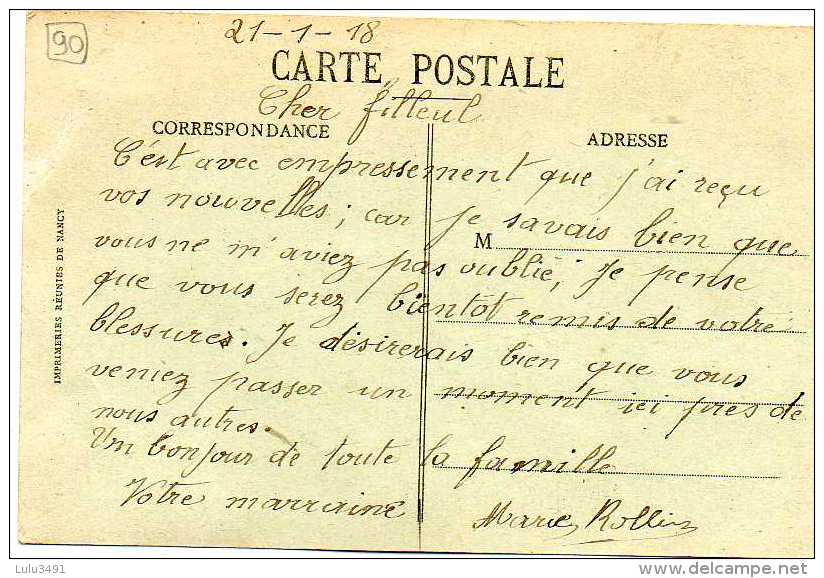 90
21-1-18
CARTE POSTALE
Cher filleul
CORRESPONDANCE
ADRESSE
C'est avec empressement que j'ai reçu
vos nouvelles; car je savais bien que
M
vous ne m'aviez pas oublié; Je pense
que vous serez bientot remis de votre
blessures. Je désirerais bien que vous
veniez passer un moment ici près de
nous autres.
Un bonjour de toute la famille
Votre marraine
Marie Rollin
IMPRIMERIES RÉUNIES DE NANCY
Lulu3491
delcampe.net